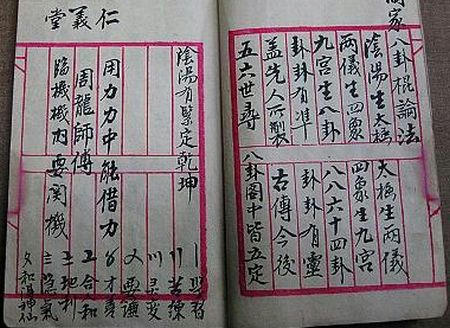 家八卦棍論法
陰陽生太極 太極生兩儀
兩儀生四象 四象生九宮
九宮生八卦 八八六十四卦
卦卦有準 卦卦有靈
蓋先人所製 古傳今後
五六世尋 八卦圖中皆五定
仁義堂
陰陽有緊定乾坤
用力力中能借力
周龍師傅
臨機機內要関機
〢苦練
〤要謙
〦合和
〧地利